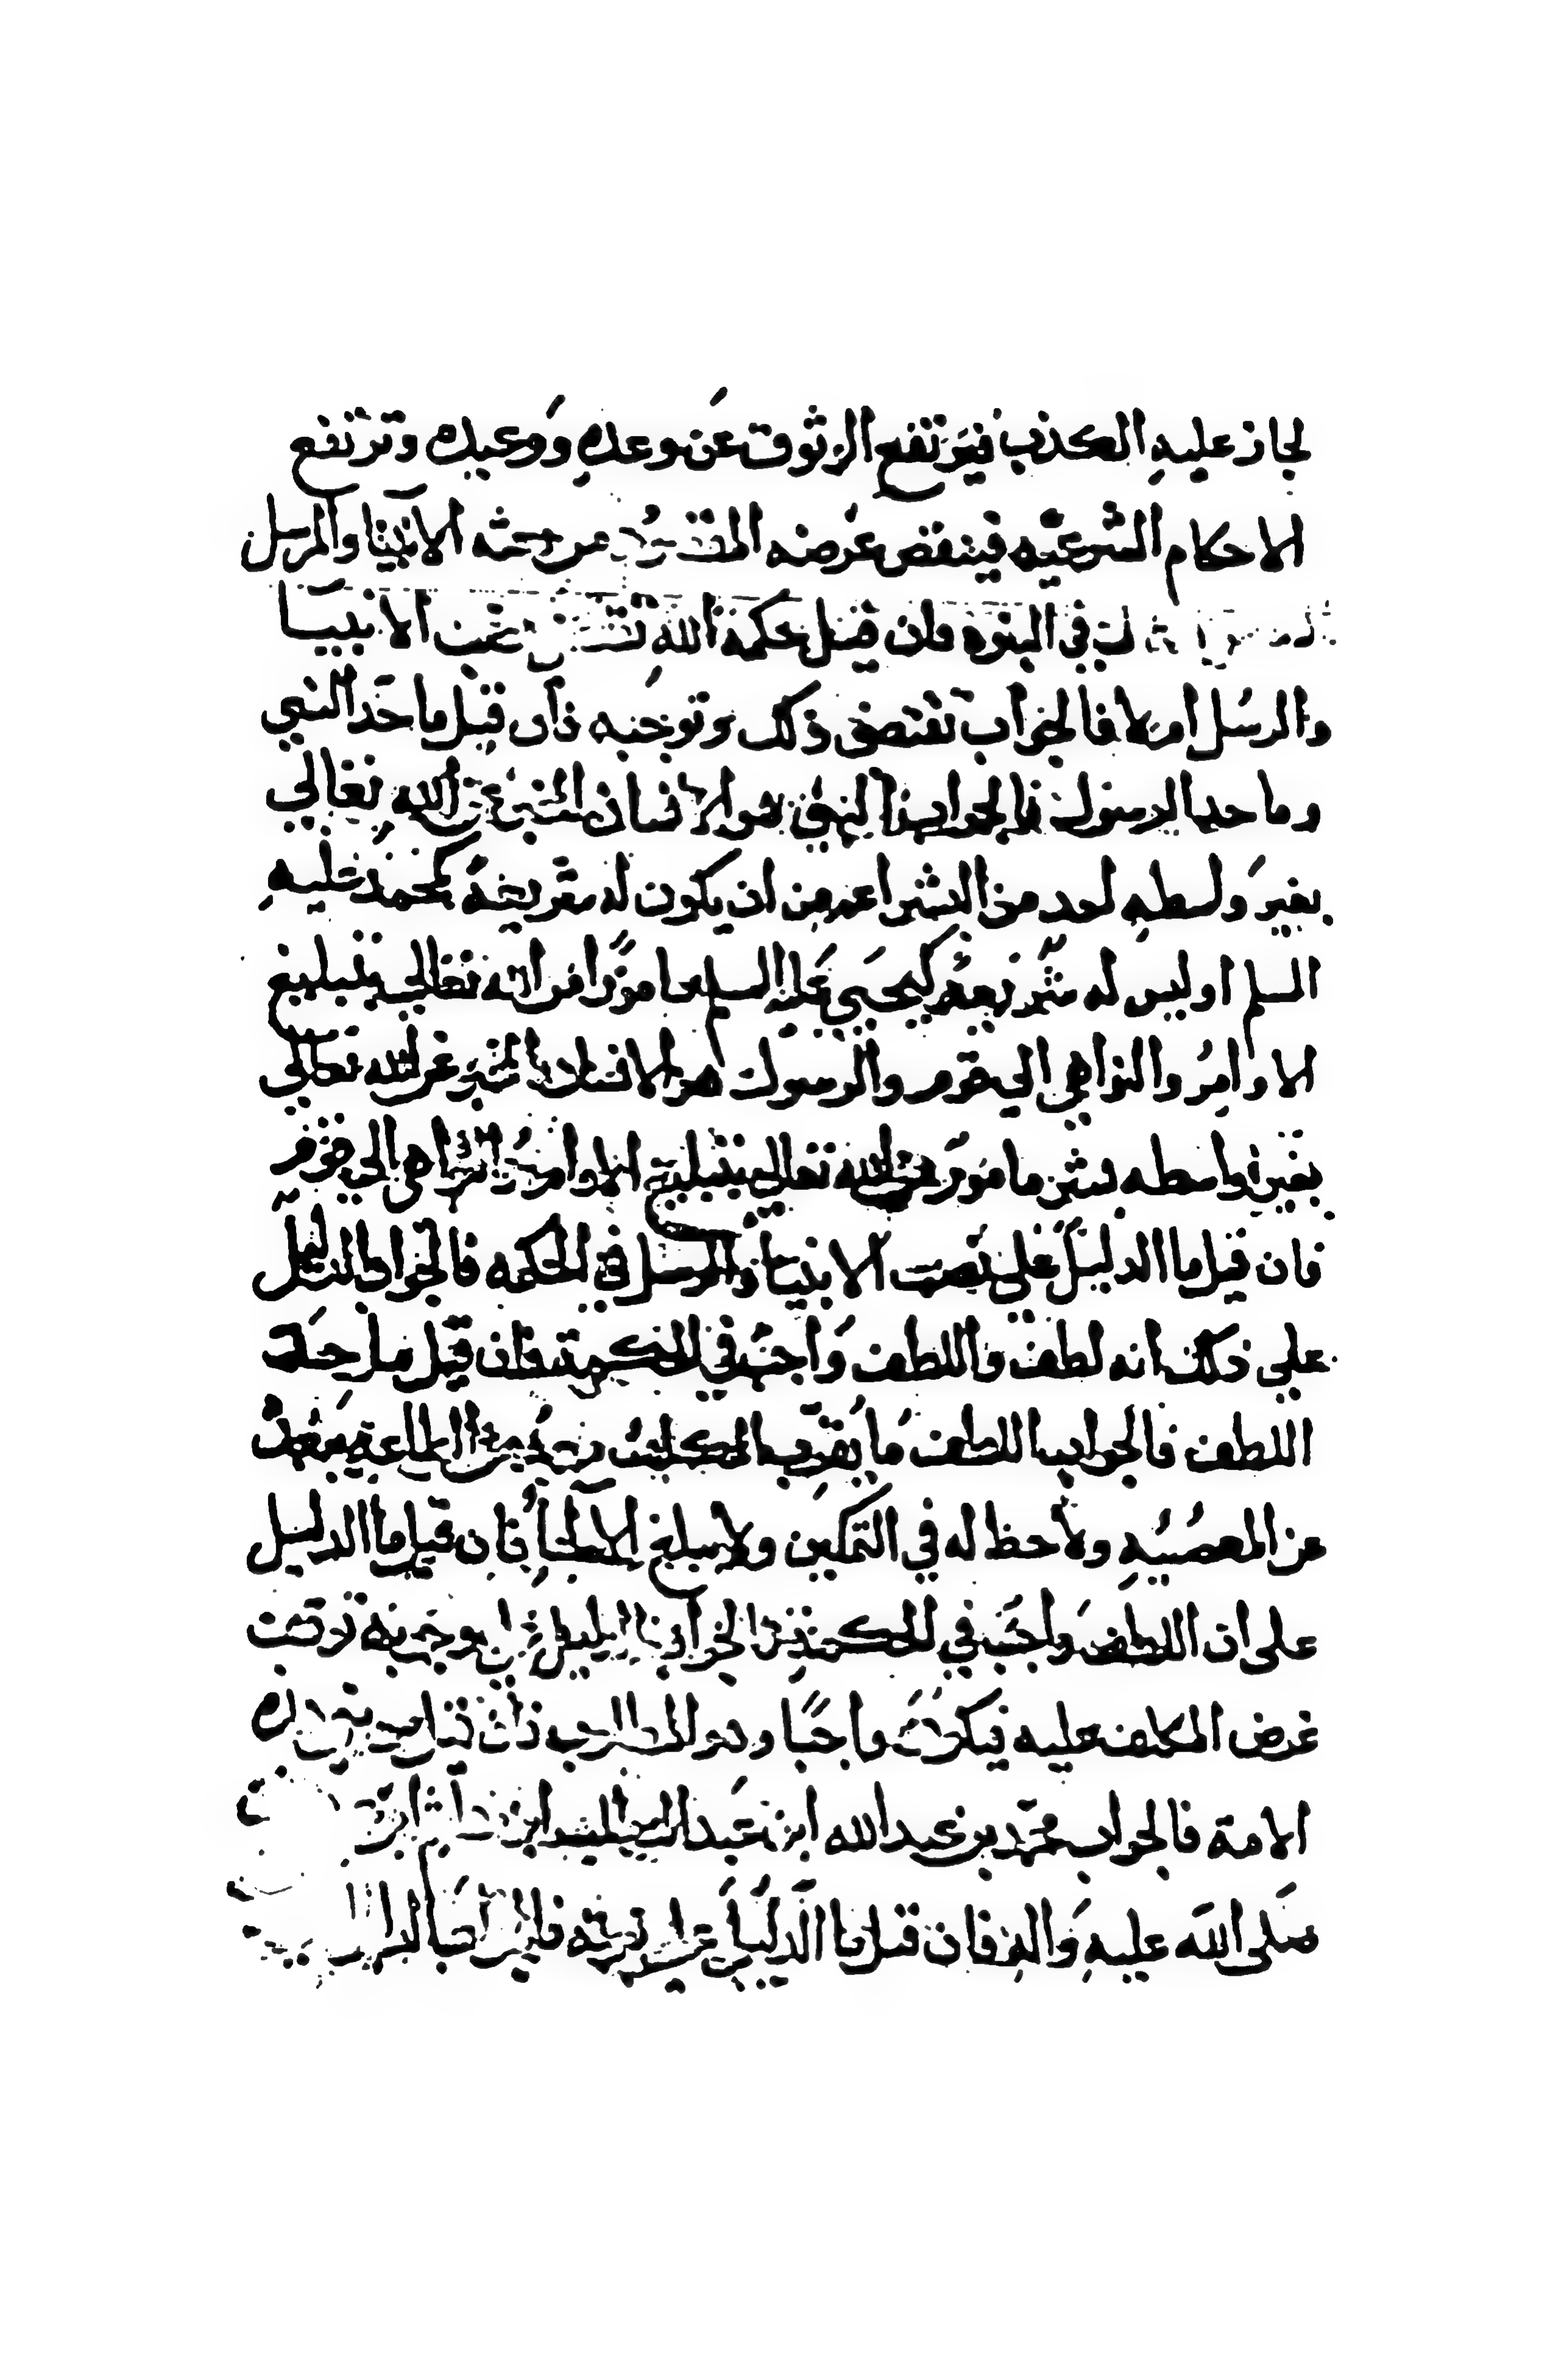 لجاز عليه الكذب فيرتفع الوثوق عن وعده ووعيده وترتفع
الاحكام الشرعيه فينتقض غرضه المقصود من بعثه الانبيا والرسل
في النبوة فان قيل حكمة الله تقتضي بعث الانبيا
والرسل ام لا فالجواب تقتضي ذلك وتوجبه فان قيل ما حد النبي
وما حد الرسول فالجواب النبي هو الانسان المخبر عن الله تعالى
بغير واسطه احد من البشر اعم من ان يكون له شريعة كمحمد عليه
السلم او ليس له شريعة كيحيى عليه السلم مامورًا من الله تعالى بتبليغ
الاوامر والنواهي الى قوم والرسول هو الانسان المخبر عن الله تعالى
بغير واسطه بشر مامور من الله تعالى بتبليغ الاوامر والنواهي الى قوم
فان قيل ما الدليل على بعث الانبيا والرسل في الحكمه فالجواب الدليل
على ذلك انه لطف واللطف واجب في الحكمة فان قيل ما حد
اللطف فالجواب اللطف ما يقرب المكلف معه من الطاعة ويبعد
عن المعصيه ولا حظ له في التمكين ولا يبلغ الالجا فان قيل ما الدليل
على ان اللطف واجب في الحكمة فالجواب الدليل على وجوبه توقف
غرض المكلف عليه فيكون واجبًا وهو المطلوب فان قيل من نبي هذه
الامة فالجواب محمد بن عبد الله ابن عبد المطلب ابن هاشم
صلى الله عليه واله فان قيل ما الدليل على نبوته فالجواب الدليل